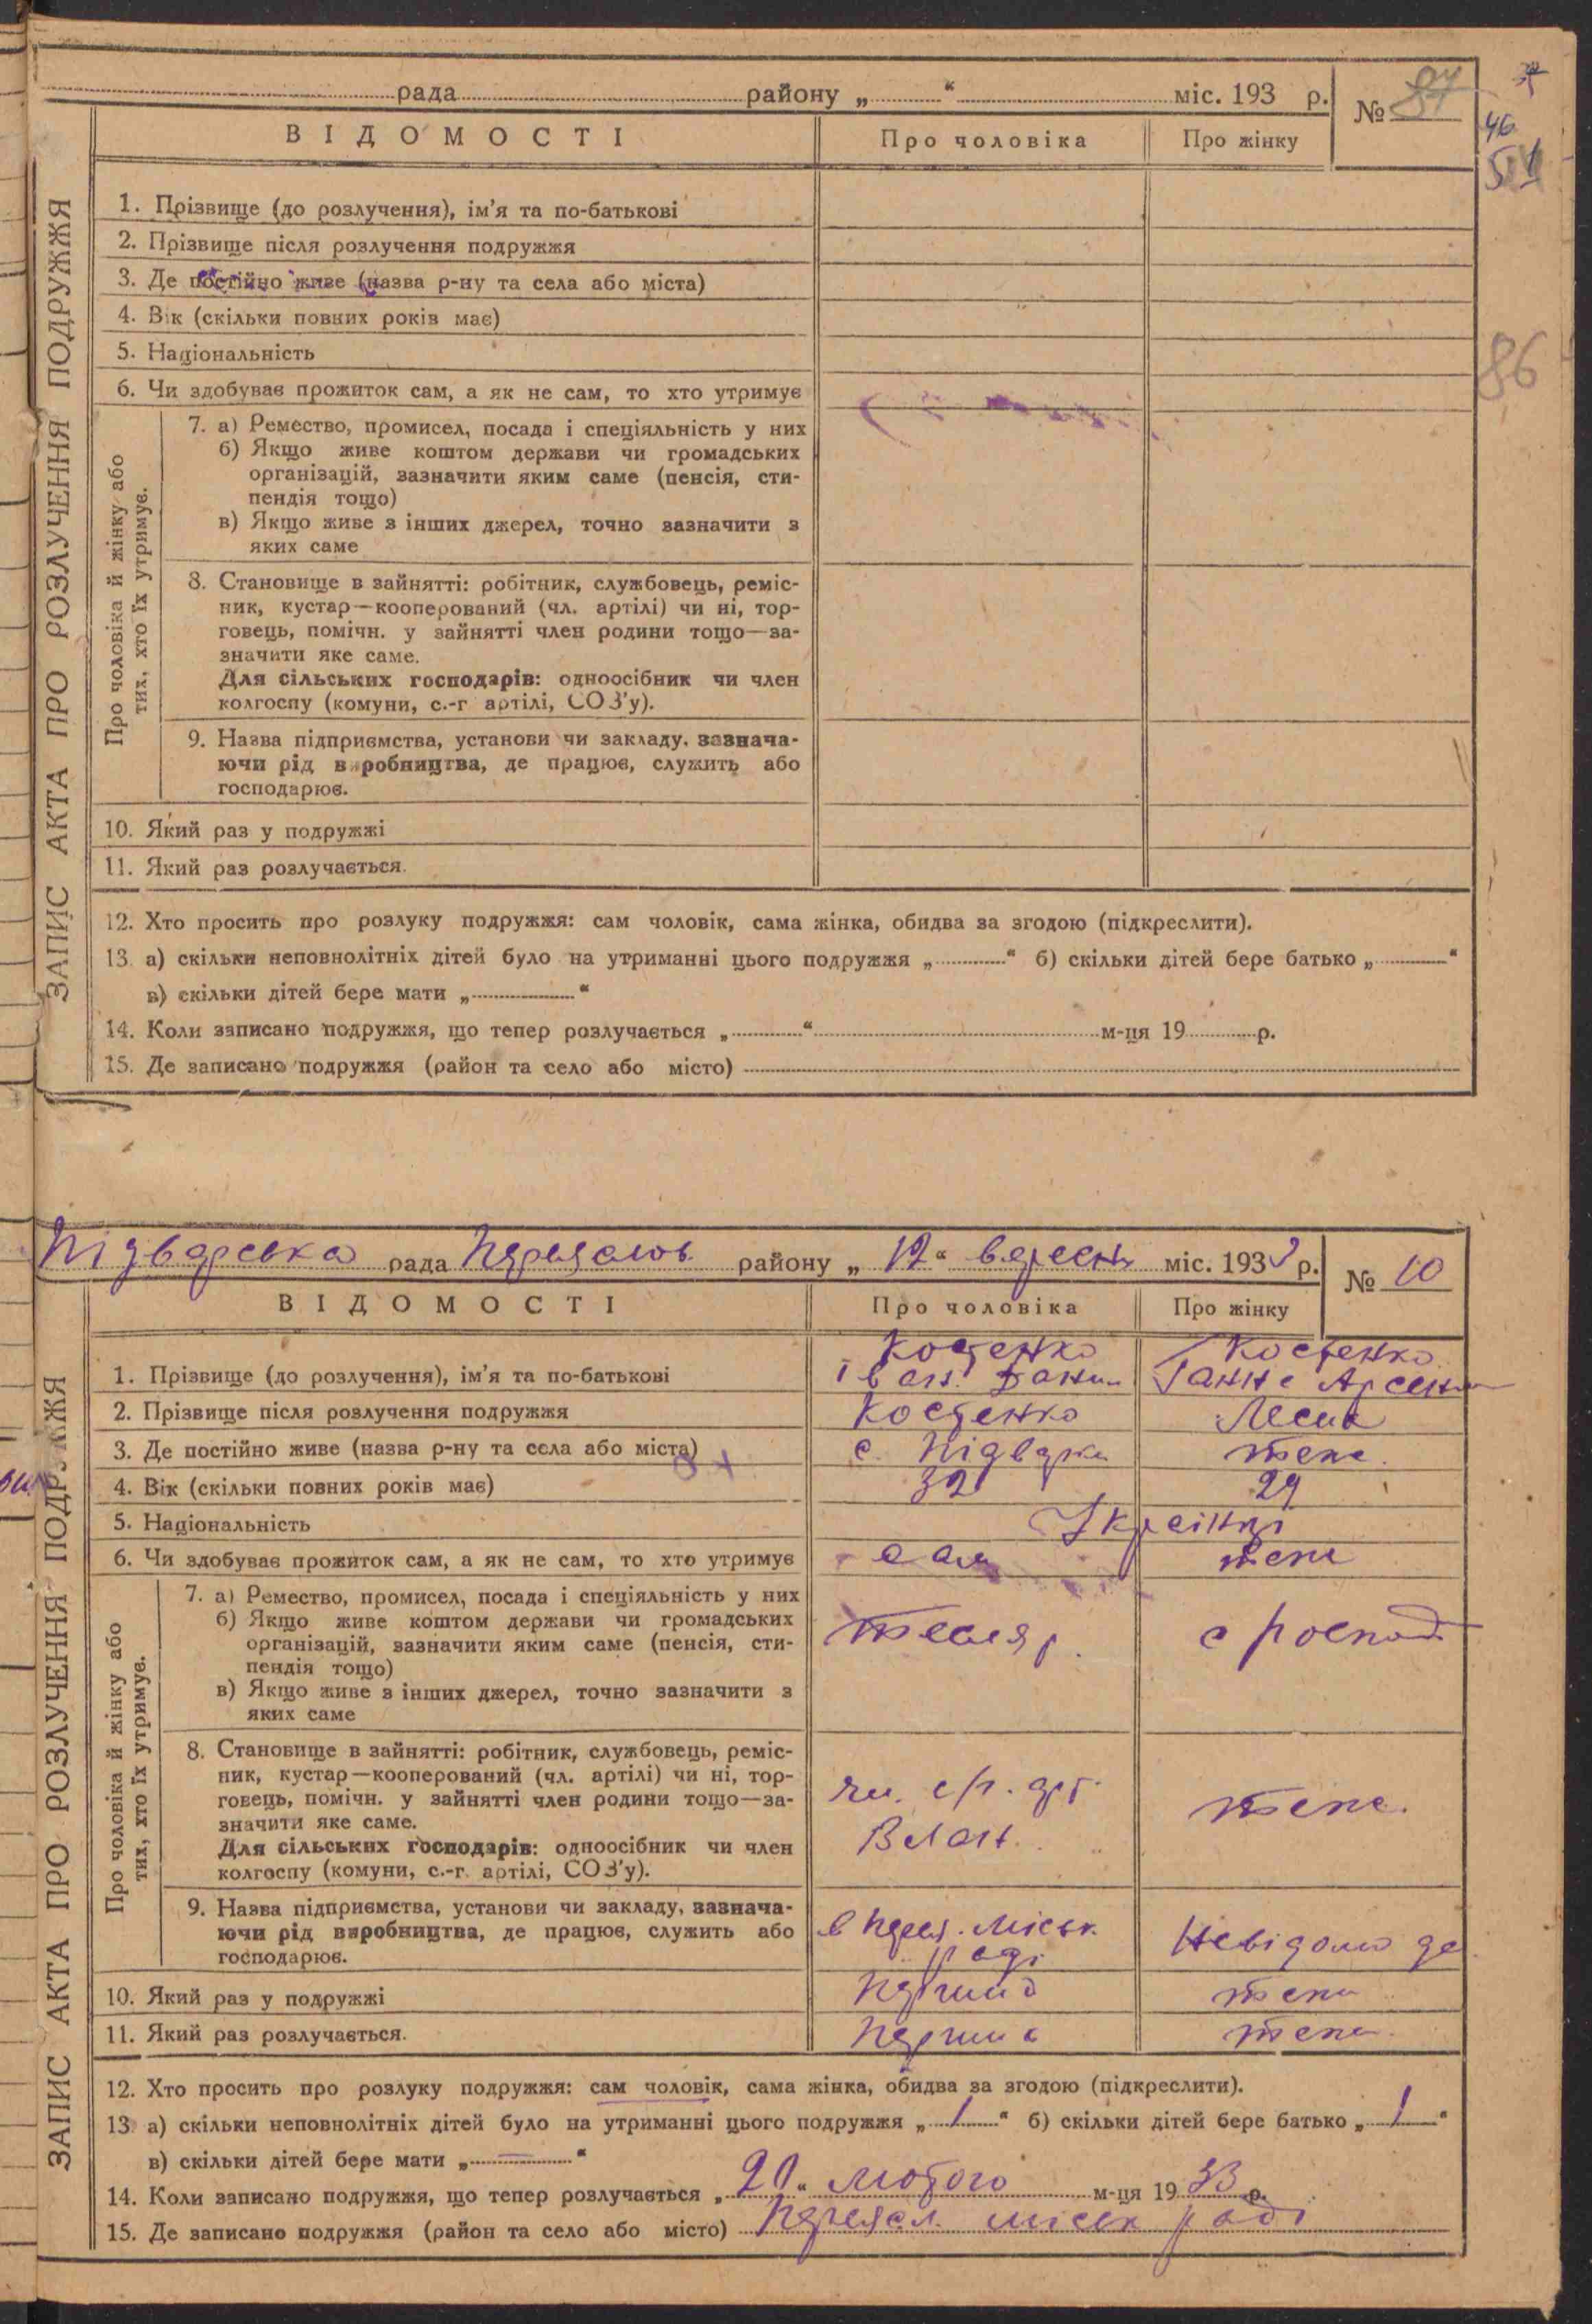 рада району „ “ міс. 193 р. №
46
86
ВІДОМОСТІ Про чоловіка Про жінку
ЗАПИС АКТА ПРО РОЗЛУЧЕННЯ ПОДРУЖЖЯ
1. Прізвище (до розлучення), ім'я та по-батькові
2. Прізвище після розлучення подружжя
3. Де постійно живе (назва р-ну та села або міста)
4. Вік (скільки повних років має)
5. Національність
6. Чи здобуває прожиток сам, а як не сам, то хто утримує
Про чоловіка й жінку або
тих, хто їх утримує.
7. а) Ремество, промисел, посада і спеціяльність у них
б) Якщо живе коштом держави чи громадських
організацій, зазначити яким саме (пенсія, сти-
пендія тощо)
в) Якщо живе з інших джерел, точно зазначити з
яких саме
8. Становище в зайнятті: робітник, службовець, реміс-
ник, кустар—кооперований (чл. артілі) чи ні, тор-
говець, помічн. у зайнятті член родини тощо—за-
значити яке саме.
Для сільських господарів: одноосібник чи член
колгоспу (комуни, с.-г артілі, СОЗ'у).
9. Назва підприємства, установи чи закладу, зазнача-
ючи рід виробництва, де працює, служить або
господарює.
10. Який раз у подружжі
11. Який раз розлучається.
12. Хто просить про розлуку подружжя: сам чоловік, сама жінка, обидва за згодою (підкреслити).
13. а) скільки неповнолітніх дітей було на утриманні цього подружжя „ “ б) скільки дітей бере батько „ “
в) скільки дітей бере мати „ “
14. Коли записано подружжя, що тепер розлучається „ “ м-ця 19 р.
15. Де записано подружжя (район та село або місто)
Підварська рада Переяслов району „12“ вересня міс. 1933 р. № 10
ВІДОМОСТІ Про чоловіка Про жінку
ЗАПИС АКТА ПРО РОЗЛУЧЕННЯ ПОДРУЖЖЯ
Костенко Костенко
1. Прізвище (до розлучення), ім'я та по-батькові Іван Данил Ганна Арсент
2. Прізвище після розлучення подружжя Костенко
3. Де постійно живе (назва р-ну та села або міста) с. Підварки теж.
4. Вік (скільки повних років має) 32 29
5. Національність Українці
6. Чи здобуває прожиток сам, а як не сам, то хто утримує сам теж
Про чоловіка й жінку або
тих, хто їх утримує.
7. а) Ремество, промисел, посада і спеціяльність у них
б) Якщо живе коштом держави чи громадських
організацій, зазначити яким саме (пенсія, сти- тесляр.
пендія тощо)
в) Якщо живе з інших джерел, точно зазначити з
яких саме
8. Становище в зайнятті: робітник, службовець, реміс-
ник, кустар—кооперований (чл. артілі) чи ні, тор- чл. с/г. арт.
говець, помічн. у зайнятті член родини тощо—за- теж.
значити яке саме.
Для сільських господарів: одноосібник чи член
колгоспу (комуни, с.-г. артілі, СОЗ'у).
9. Назва підприємства, установи чи закладу, зазнача-
ючи рід виробництва, де працює, служить або в Перея. міськ. Невідомо де
господарює. раді
10. Який раз у подружжі перший теж
11. Який раз розлучається. перший теж.
12. Хто просить про розлуку подружжя: сам чоловік, сама жінка, обидва за згодою (підкреслити).
13. а) скільки неповнолітніх дітей було на утриманні цього подружжя „1“ б) скільки дітей бере батько „1“
в) скільки дітей бере мати „—“
14. Коли записано подружжя, що тепер розлучається „20“ лютого м-ця 1933 р.
15. Де записано подружжя (район та село або місто) Переясл. міськ раді